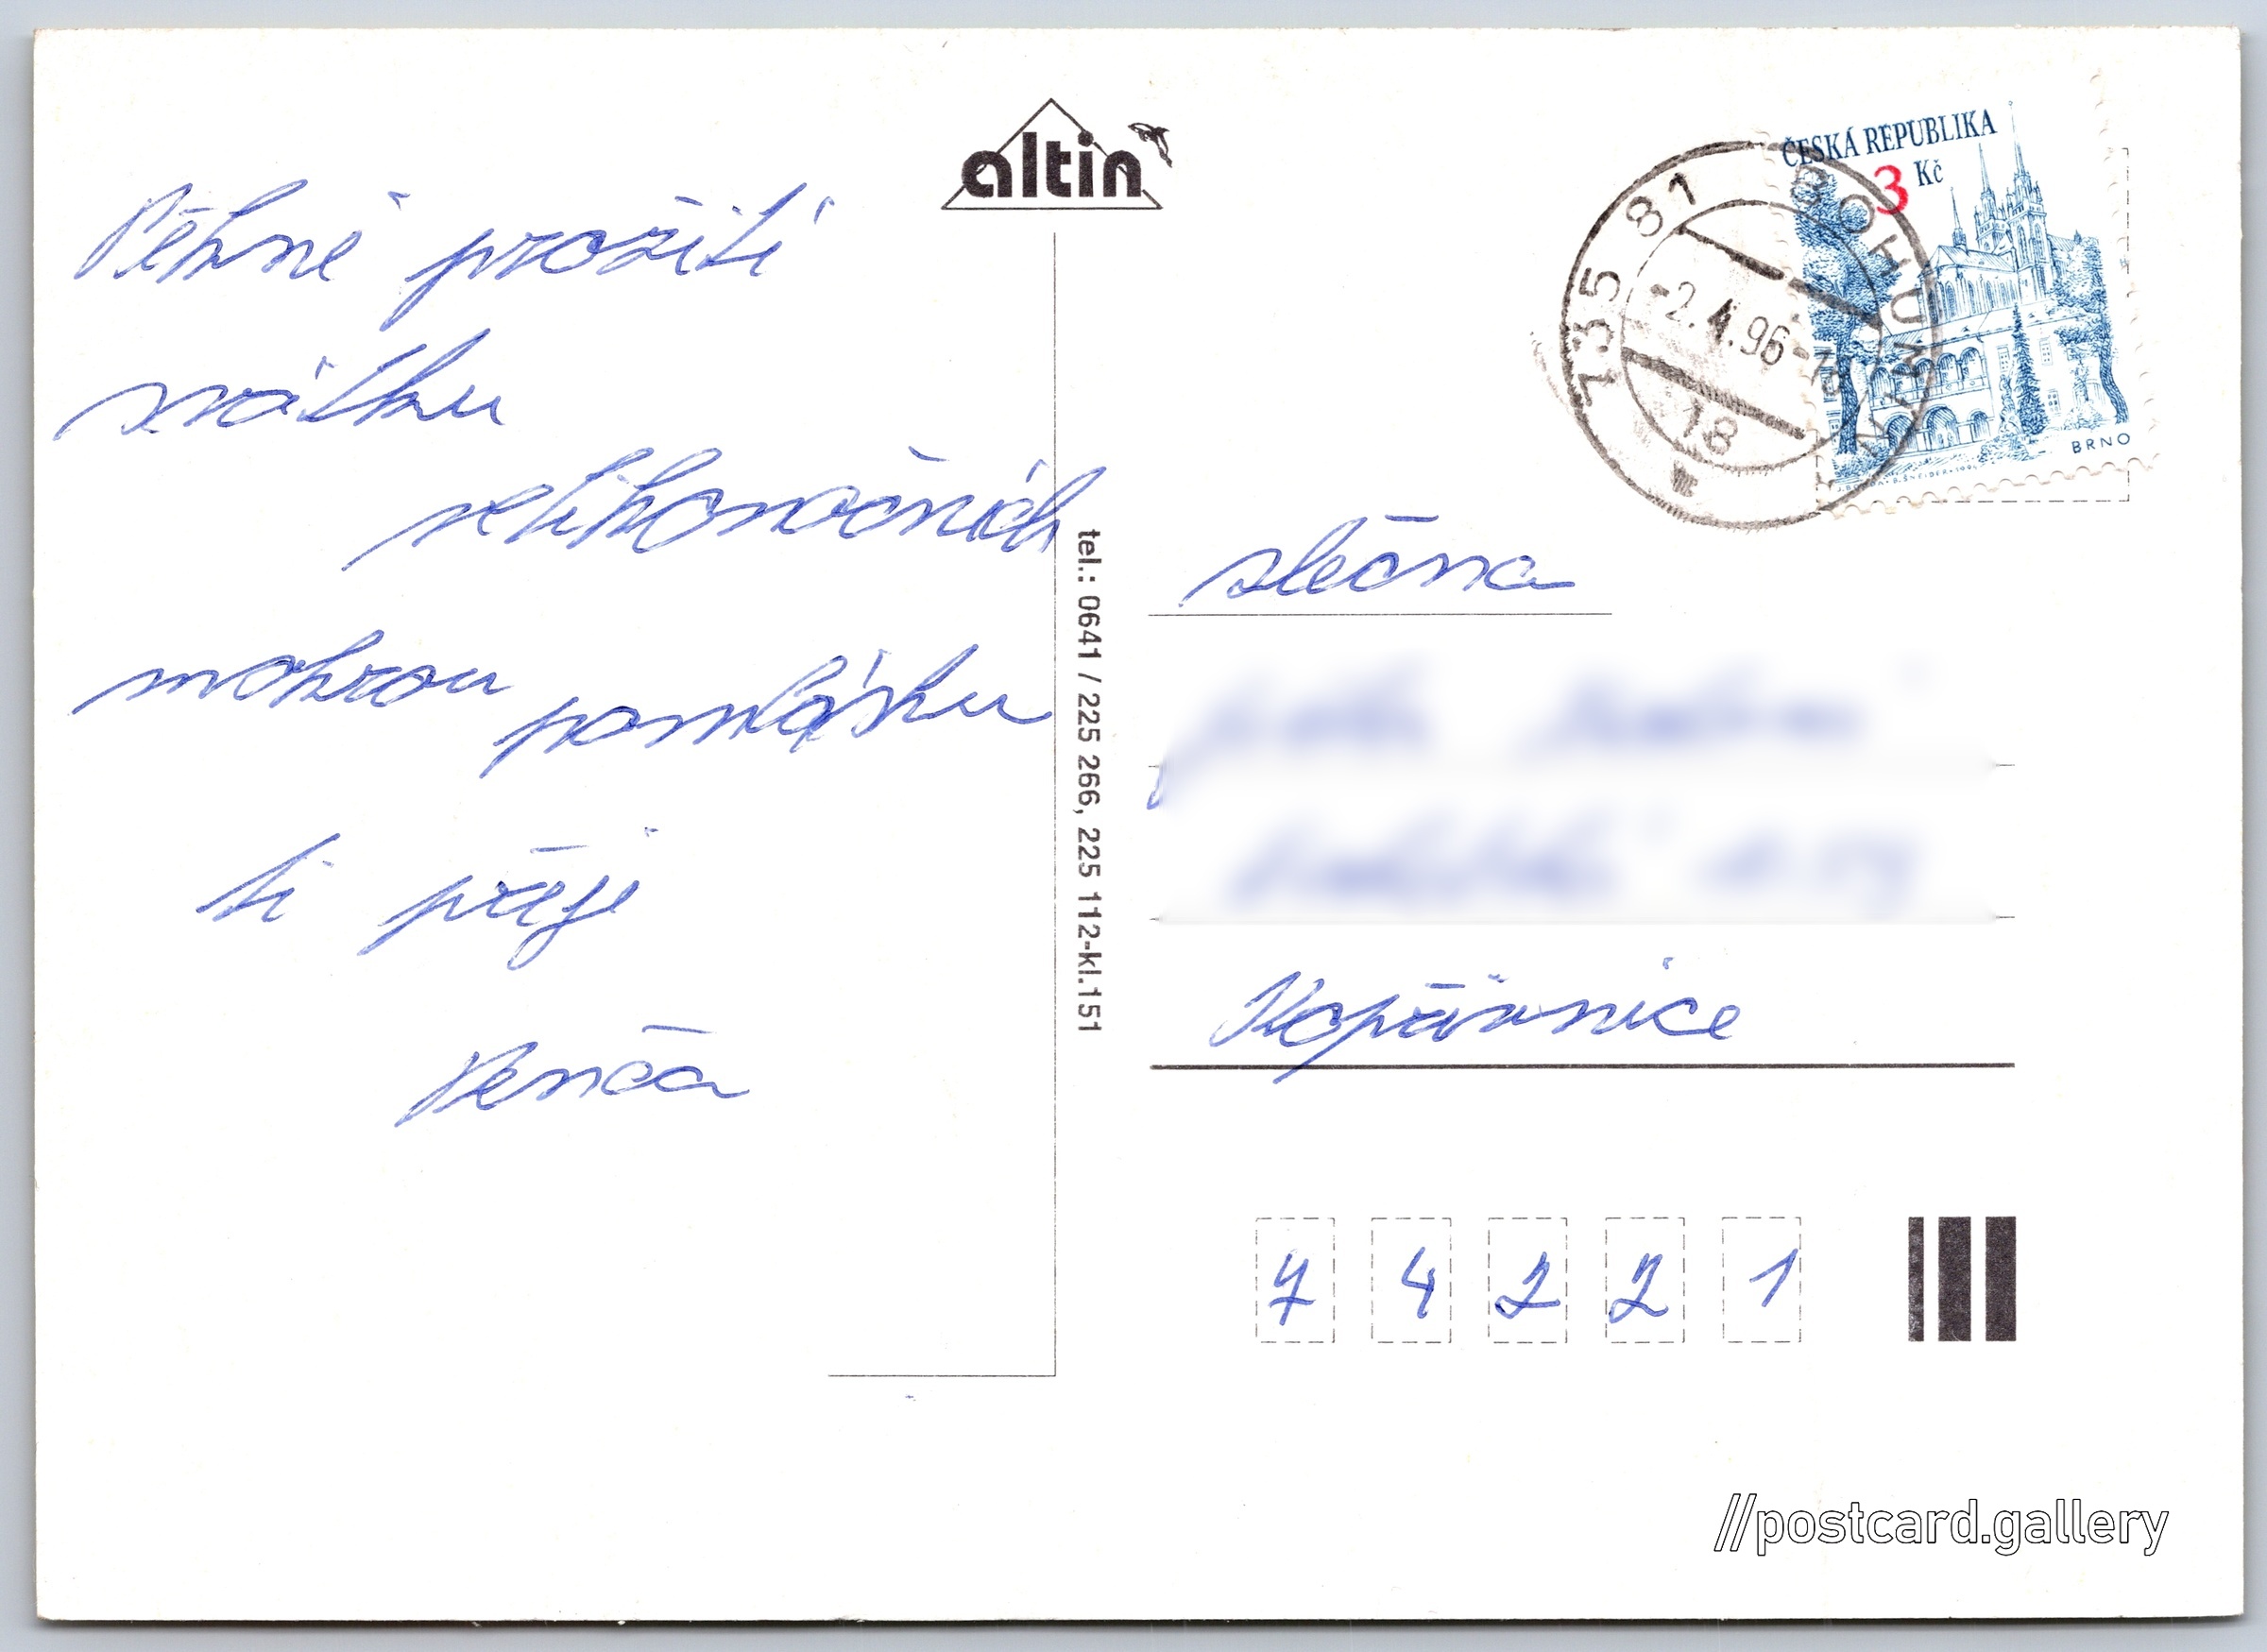 altin
Pěkné prožití
svátku
velikonočních
mokrou pomlásku
ti přeje
Venča
tel.: 0641 / 225 266, 225 112-kl.151
ČESKÁ REPUBLIKA
3 Kč
BRNO
735 81 BOHUMÍN
-2.4.96-18
18
slečna
Kopřivnice
7 4 2 2 1
//postcard.gallery